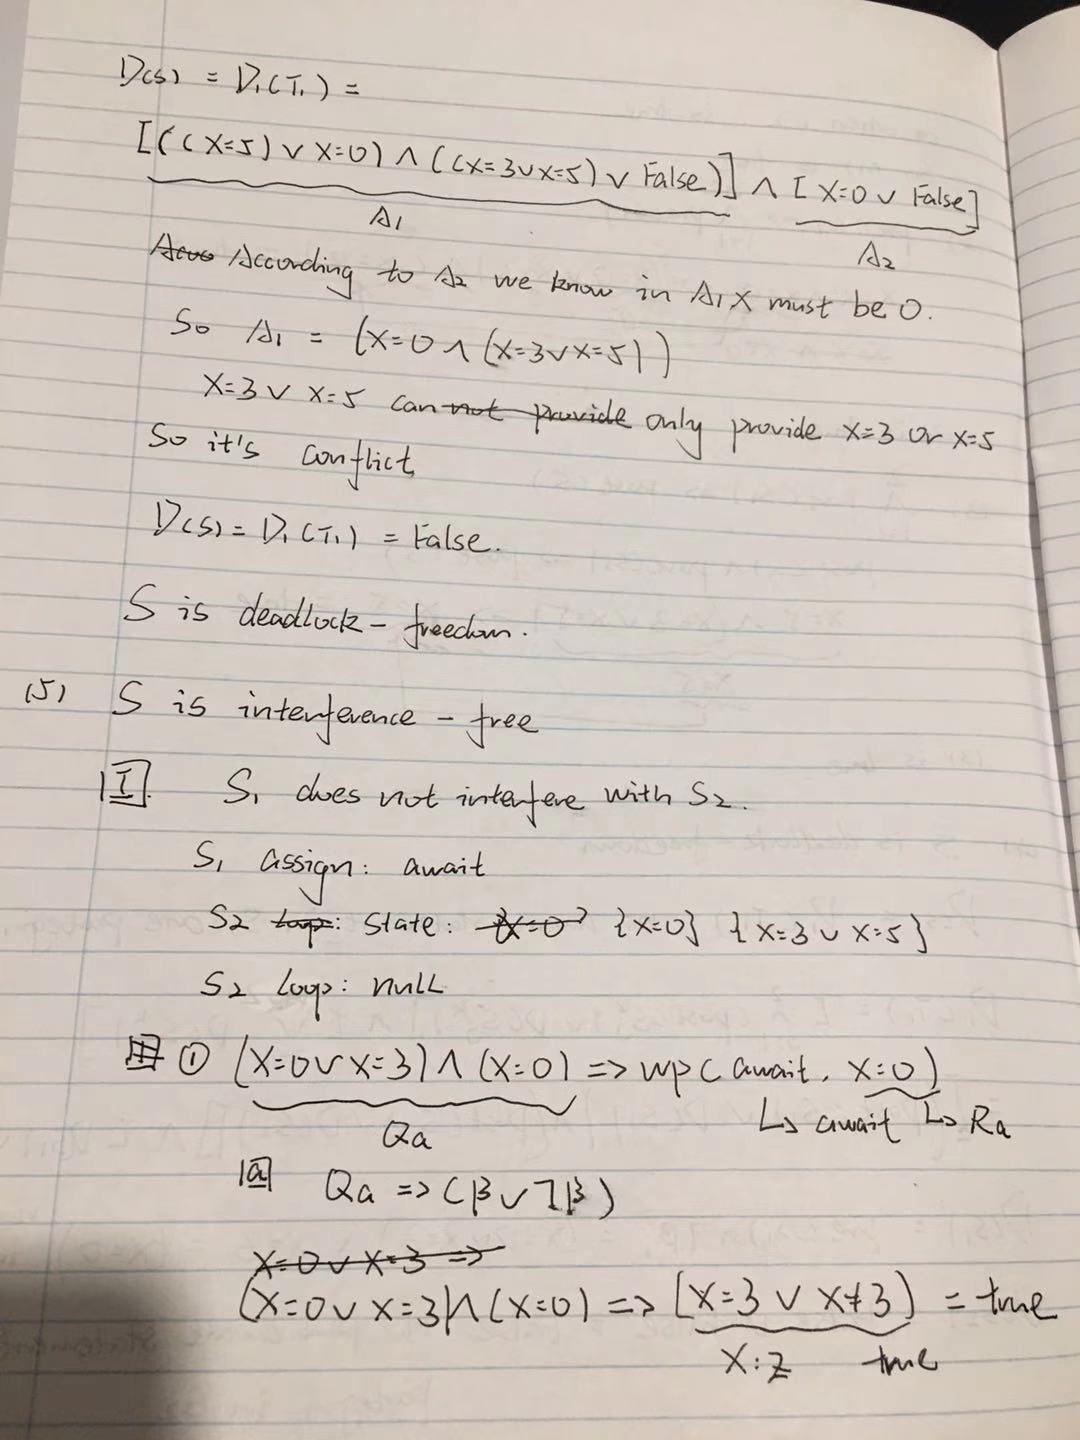 D(S) = D₁(T₁) =
[((X=5) ∨ X=0) ∧ ((X=3∨X=5) ∨ False)] ∧ [X=0 ∨ False]
A₁ A₂
According to A₂ we know in A₁ X must be 0.
So A₁ = (X=0 ∧ (X=3∨X=5))
X=3 ∨ X=5 can not provide only provide X=3 or X=5
So it's conflict
D(S) = D₁(T₁) = False.
S is deadlock-freedom.
(5) S is interference-free
I S₁ does not interfere with S₂.
S₁ assign: await
S₂ loop: state: X=0 {X=0} {X=3 ∨ X=5}
S₂ loop: null
① (X=0∨X=3) ∧ (X=0) => wp(await, X=0)
Qa ↳ await ↳ Ra
a Qa => (β∨¬β)
X=0 ∨ X=3 =>
(X=0 ∨ X=3) ∧ (X=0) => (X=3 ∨ X≠3) = true
X:Z true